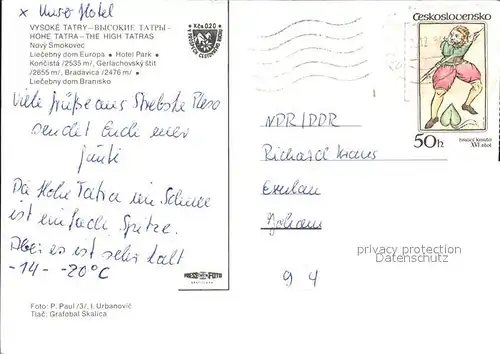 x Unser Hotel
VYSOKÉ TATRY – ВЫСОКИЕ ТАТРЫ -
HOHE TATRA – THE HIGH TATRAS
Nový Smokovec
Liečebný dom Europa • Hotel Park •
Končistá /2535 m/, Gerlachovský štít
/2655 m/, Bradavica /2476 m/ •
Liečebný dom Branisko
Kčs 0,20
Viele Grüße aus Strbske Pleso
sendet Euch euer
Die Hohe Tatra im Schnee
ist einfach Spitze.
Aber es ist sehr kalt
-14 - -20°C
PRESSFOTO
BRATISLAVA
Foto: P. Paul /3/, I. Urbanovič
Tlač: Grafobal Skalica
Československo
50h
XVI. stol.
NDR/DDR
Richard Kraus
9 4
privacy protection
Datenschutz